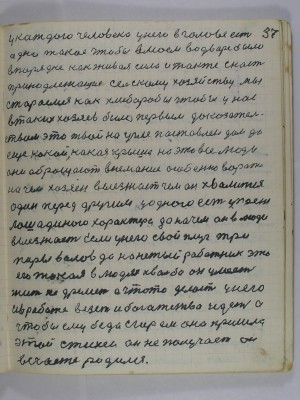 37
у каждого человека у него в голове ест
одно такое чтобы в моем подварю было
в порядке как живая сила и также снаст
принадлежащие селскому хозяйству мы
стараемся как хлебаробы чтоб и у нас
в таких хозяев было первым
твом это твой на углу поставлен дом да
еще какой, какая крыша на это все люди
они обращают внимание особенно ворота
на чем хозяен выезжает чем он хвалится
один перед другим у одного ест
лошадиного характера до на чем он в люди
выезжает если у него свой плуг три
пары валов да нанетый работник это
его такая в людях хвалбо он умеет
жит не дремет а что то делает у него
и в работе везет и богатство идет а
чтобы ему беда с она пришла
этой стихеи он не получает он
в счасте родился.